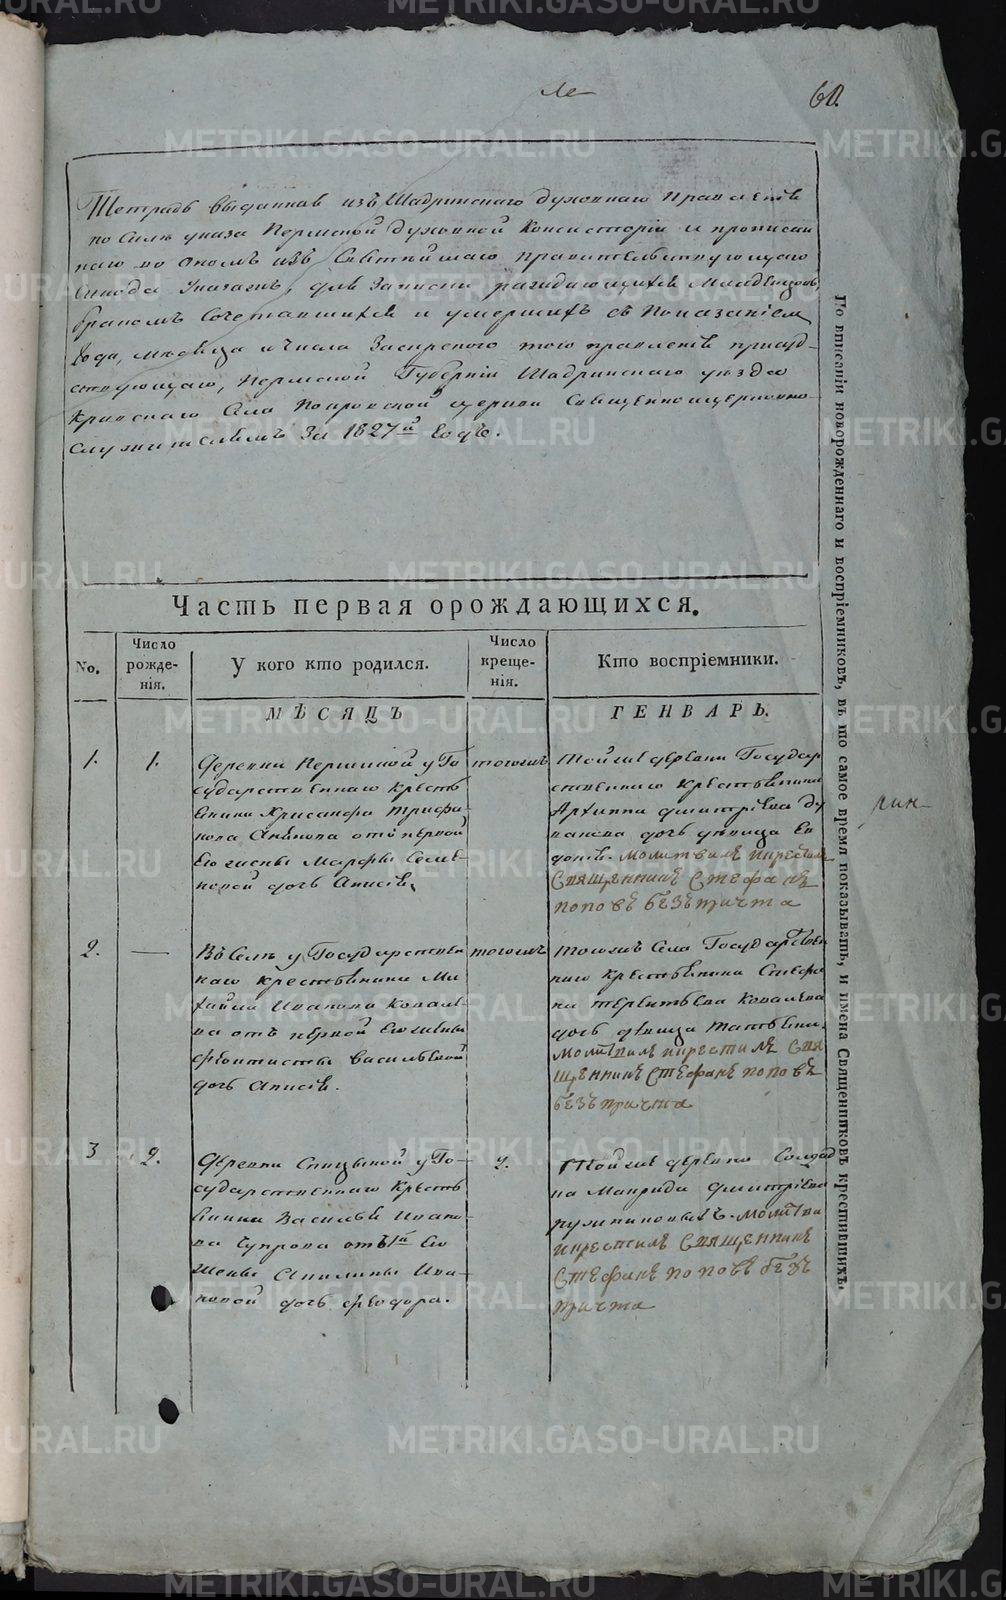 60.
Тетрадь выданная изъ Шадринскаго духовнаго Правленія
по Силѣ указа Пермской Духовной Консисторіи и прописан
наго во ономъ изъ Святѣйшаго правительствующаго
Сѵнода Указа, для Записки раждающихся Младенцовъ,
бракомъ Сочетавшихся и умершихъ съ Показаніемъ
Года, мѣсяца и числа Заскрепою того правленія присуд-
ствующаго, Пермской Губерніи Шадринскаго уѣзда
Кривскаго Села Покровской церкви Священноцерковно-
служителямъ За 1827й Годъ.
Часть первая орождающихся.
No.
Число рожде-нія.
У кого кто родился.
Число креще-нія.
Кто воспріемники.
МѢСЯЦЪ
ГЕНВАРЬ.
1.
1.
Деревни Першиной у Го
сударственнаго Кресть
янина Хрисанфа Трифа
нова отъ первой
Его жены Марфы Семе
новой дочь Анисія
тогожъ
Тойже деревни Государ
ственнаго Крестьянина
Архиппа Дмитріева
дочь девица Ев
докія. молитвилъ икрестилъ
Священникъ Стефанъ
поповъ безъ причта
2.
—
Въ Селѣ у Государствен
наго крестьянина Ми
хаила Иванова Ковале
ва отъ первой Его жены
Феоктисты Васильевой
дочь Анисія.
тогожъ
тогожъ Села Государствен
наго Крестьянина Стефа
на Терентьева Ковалева
дочь девица Татьяна.
молитвилъ икрестилъ Свя
щенникъ Стефанъ поповъ
безъ причта
3
2.
Деревни Спицыной у Го-
сударственнаго Кресть
янина Василья Ивано
ва Чупрова отъ 1й Его
Жены Апилины Ива-
новой дочь Феодора.
2.
Тойже деревни Солдат
ка Маврида Дмитріева
молитви
икрестилъ Священникъ
Стефанъ поповъ безъ
причта
Го вписаніи новорожденнаго и воспріемниковъ, въ то самое время показывать, и имена Священниковъ крестившихъ.